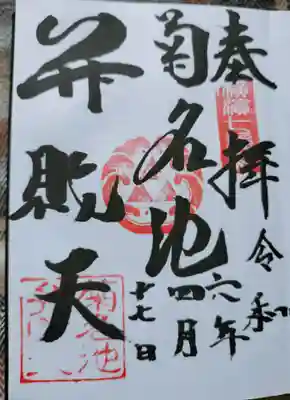 奉拝
令和
六年
四月
十七日
菊名池
弁財天